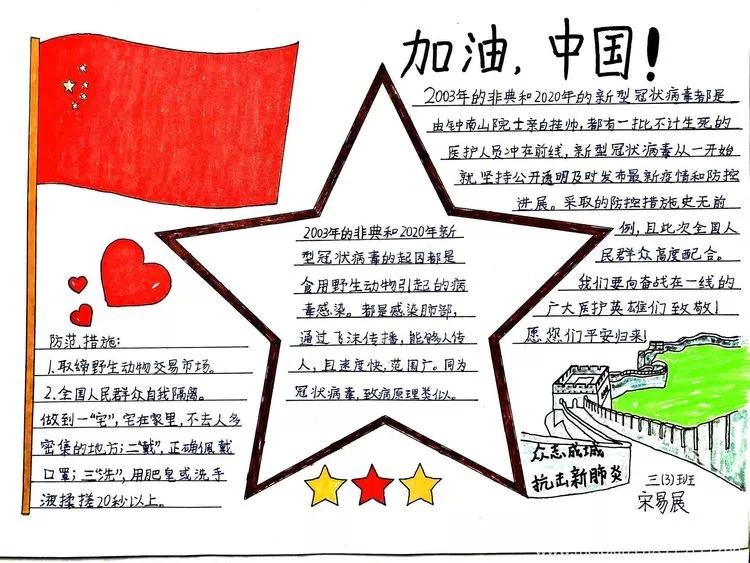 加油，中国！
2003年的非典和2020年的新型冠状病毒都是
由钟南山院士亲自挂帅，都有一批不计生死的
医护人员冲在前线，新型冠状病毒从一开始
就坚持公开透明及时发布最新疫情和防控
进展。采取的防控措施史无前
例，且此次全国人
民群众高度配合。
我们要向奋战在一线的
广大医护英雄们致敬！
愿您们平安归来！
2003年的非典和2020年新
型冠状病毒的起因都是
食用野生动物引起的病
毒感染。都是感染肺部，
通过飞沫传播，能够人传
人，且速度快，范围广。同为
冠状病毒，致病原理类似。
防范措施：
1.取缔野生动物交易市场。
2.全国人民群众自我隔离。
做到一“宅”，宅在家里，不去人多
密集的地方；二“戴”，正确佩戴
口罩；三“洗”，用肥皂或洗手
液揉搓20秒以上。
众志成城
抗击新肺炎
三(3)班
宋易展